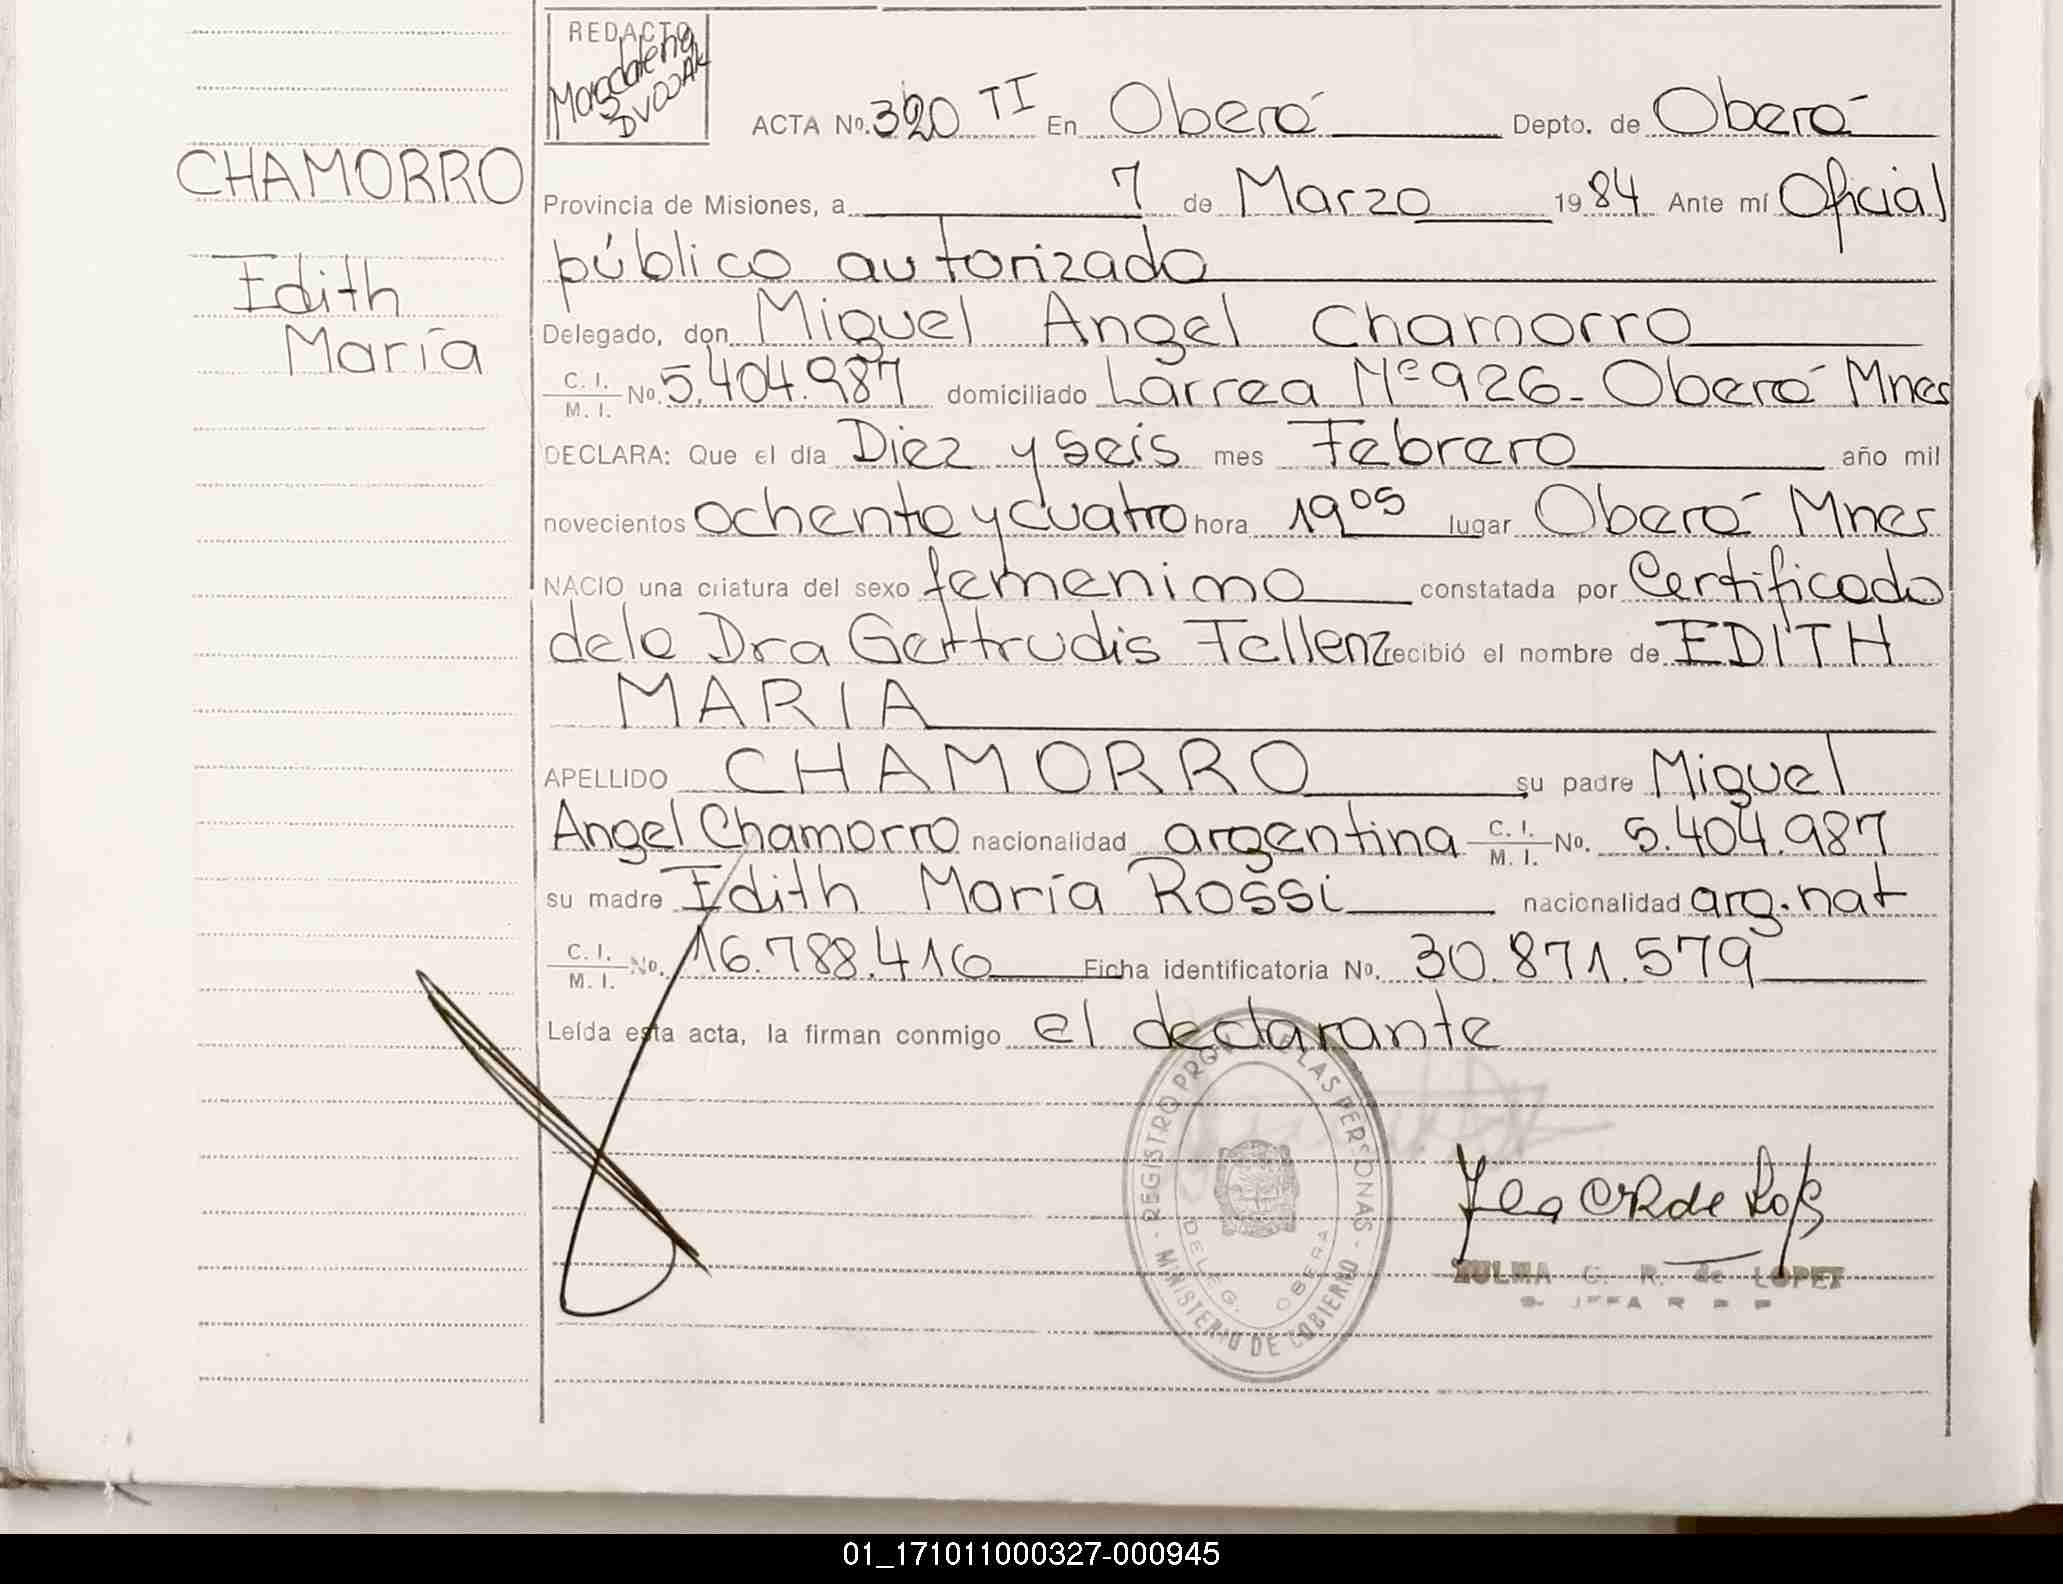 REDACTO
Magdalena
DVODAK
ACTA No. 320 TI En Oberá Depto. de Oberá
CHAMORRO
Edith
María
Provincia de Misiones, a 7 de Marzo 1984 Ante mí Oficial
público autorizado
Delegado, don Miguel Angel Chamorro
C. I. M. I. No. 5.404.987 domiciliado Larrea Nº 926 - Oberá Mnes
DECLARA: Que el día Diez y seis mes Febrero año mil
novecientos ochenta y cuatro hora 19 05 lugar Oberá Mnes
NACIO una criatura del sexo femenino constatada por Certificado
dela Dra Gertrudis Fellenz recibió el nombre de EDITH
MARIA
APELLIDO CHAMORRO su padre Miguel
Angel Chamorro nacionalidad argentina C. I. M. I. No. 5.404.987
su madre Edith María Rossi nacionalidad arg. nat
C. I. M. I. No. 16.788.416 Ficha identificatoria No. 30.871.579
Leída esta acta, la firman conmigo el declarante
REGISTRO PROV. DE LAS PERSONAS
- MINISTERIO DE GOBIERNO -
DELEG. OBERA
ZULMA C. R. de LOPEZ
01_171011000327-000945